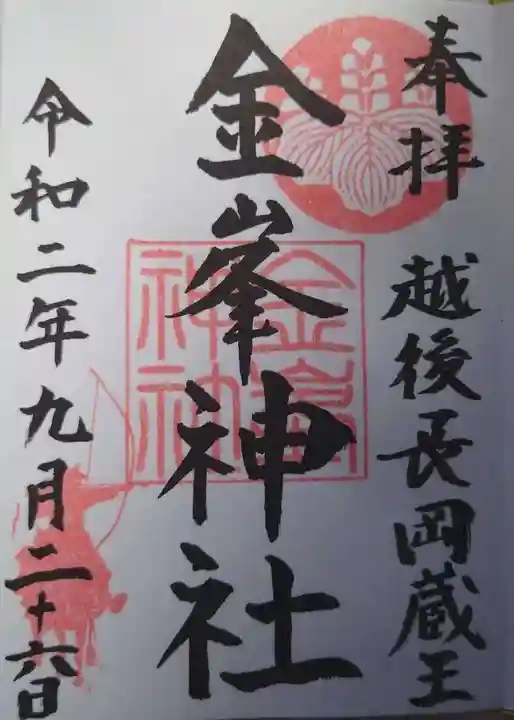 奉拝 越後長岡蔵王
金峯神社
令和二年九月二十六日